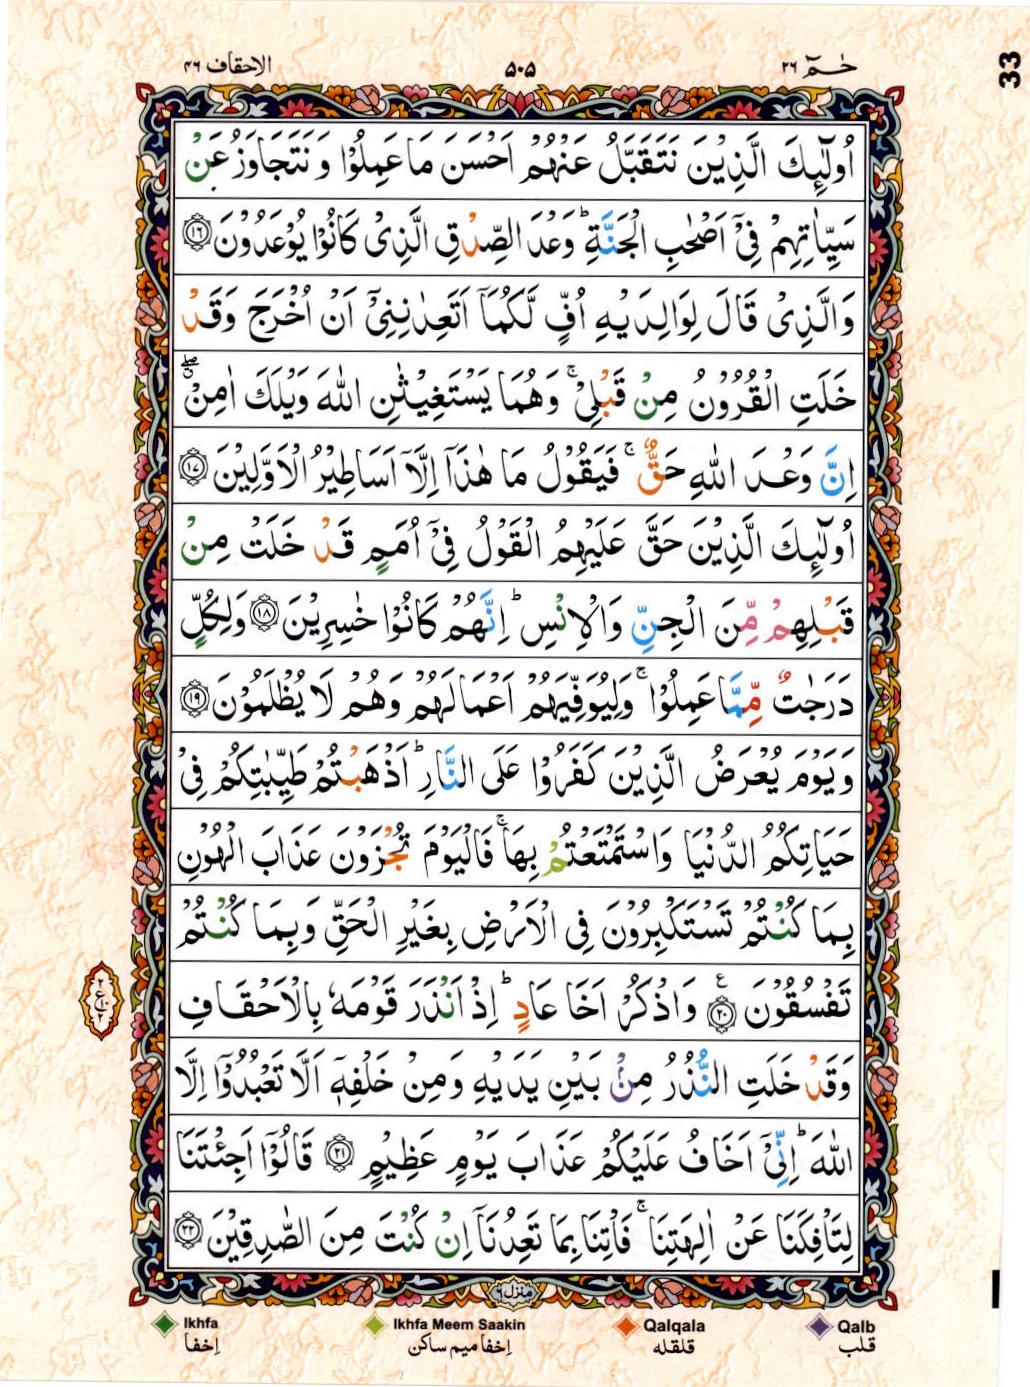 الاحقاف ۴۶ ۵۰۵ حٰمٓ ۲۶
33
اُولٰٓئِكَ الَّذِيْنَ نَتَقَبَّلُ عَنْهُمْ اَحْسَنَ مَا عَمِلُوْا وَ نَتَجَاوَزُ عَنْ
سَيِّاٰتِهِمْ فِيْٓ اَصْحٰبِ الْجَنَّةِ ؕ وَعْدَ الصِّدْقِ الَّذِيْ كَانُوْا يُوْعَدُوْنَ ۝۱۶
وَالَّذِيْ قَالَ لِوَالِدَيْهِ اُفٍّ لَّكُمَاۤ اَتَعِدٰنِنِيْٓ اَنْ اُخْرَجَ وَقَدْ
خَلَتِ الْقُرُوْنُ مِنْ قَبْلِيْ ۚ وَهُمَا يَسْتَغِيْثٰنِ اللّٰهَ وَيْلَكَ اٰمِنْ ۖۗ
اِنَّ وَعْدَ اللّٰهِ حَقٌّ ۚ فَيَقُوْلُ مَا هٰذَاۤ اِلَّاۤ اَسَاطِيْرُ الْاَوَّلِيْنَ ۝۱۷
اُولٰٓئِكَ الَّذِيْنَ حَقَّ عَلَيْهِمُ الْقَوْلُ فِيْٓ اُمَمٍ قَدْ خَلَتْ مِنْ
قَبْلِهِمْ مِّنَ الْجِنِّ وَالْاِنْسِ ؕ اِنَّهُمْ كَانُوْا خٰسِرِيْنَ ۝۱۸ وَلِكُلٍّ
دَرَجٰتٌ مِّمَّا عَمِلُوْا ۚ وَلِيُوَفِّيَهُمْ اَعْمَالَهُمْ وَهُمْ لَا يُظْلَمُوْنَ ۝۱۹
وَيَوْمَ يُعْرَضُ الَّذِيْنَ كَفَرُوْا عَلَى النَّارِ ؕ اَذْهَبْتُمْ طَيِّبٰتِكُمْ فِيْ
حَيَاتِكُمُ الدُّنْيَا وَاسْتَمْتَعْتُمْ بِهَا ۚ فَالْيَوْمَ تُجْزَوْنَ عَذَابَ الْهُوْنِ
بِمَا كُنْتُمْ تَسْتَكْبِرُوْنَ فِى الْاَرْضِ بِغَيْرِ الْحَقِّ وَبِمَا كُنْتُمْ
تَفْسُقُوْنَ ۝۲۰ع وَاذْكُرْ اَخَا عَادٍ ؕ اِذْ اَنْذَرَ قَوْمَهٗ بِالْاَحْقَافِ
وَقَدْ خَلَتِ النُّذُرُ مِنْۢ بَيْنِ يَدَيْهِ وَمِنْ خَلْفِهٖۤ اَلَّا تَعْبُدُوْٓا اِلَّا
اللّٰهَ ؕ اِنِّيْٓ اَخَافُ عَلَيْكُمْ عَذَابَ يَوْمٍ عَظِيْمٍ ۝۲۱ قَالُوْٓا اَجِئْتَنَا
لِتَاْفِكَنَا عَنْ اٰلِهَتِنَا ۚ فَاْتِنَا بِمَا تَعِدُنَاۤ اِنْ كُنْتَ مِنَ الصّٰدِقِيْنَ ۝۲۲
منزل ۶
Ikhfa Ikhfa Meem Saakin Qalqala Qalb
اِخفا اِخفا میم ساکن قلقله قلب